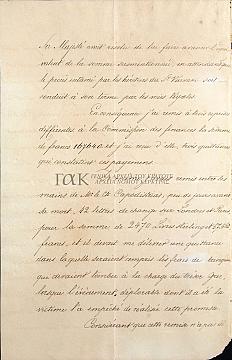 Sa Majesté avait résolu de lui faire avancer l'équi-
valent de la somme susmentionnée, en attendant que
le procès intenté par les héritiers du Sr Varvari soit
conduit à son terme par les voies légales.
En conséquence j'ai remis à trois reprises
différentes à la Commission des finances la somme
de francs 167640. et j'ai reçu d'elle trois quittances
qui constatent ces payemens.
ΓΑΚ ΓΕΝΙΚΑ ΑΡΧΕΙΑ ΤΟΥ ΚΡΑΤΟΥΣ
ΑΡΧΕΙΑ ΝΟΜΟΥ ΚΕΡΚΥΡΑΣ
remis entre les
mains de Mr le Cte Capodistrias, peu de jours avant
sa mort, 12 lettres de change sur Londres et Paris
pour la somme de 2470 livres sterling et
francs, et il devait me délivrer une quittance
dans laquelle seraient compris les frais de banque
qui devaient tomber à la charge du trésor Grec,
lorsque l'évènement déplorable dont il a été la
victime l'a empêché de réaliser cette promesse.
Considérant que cette remise n'a pas été